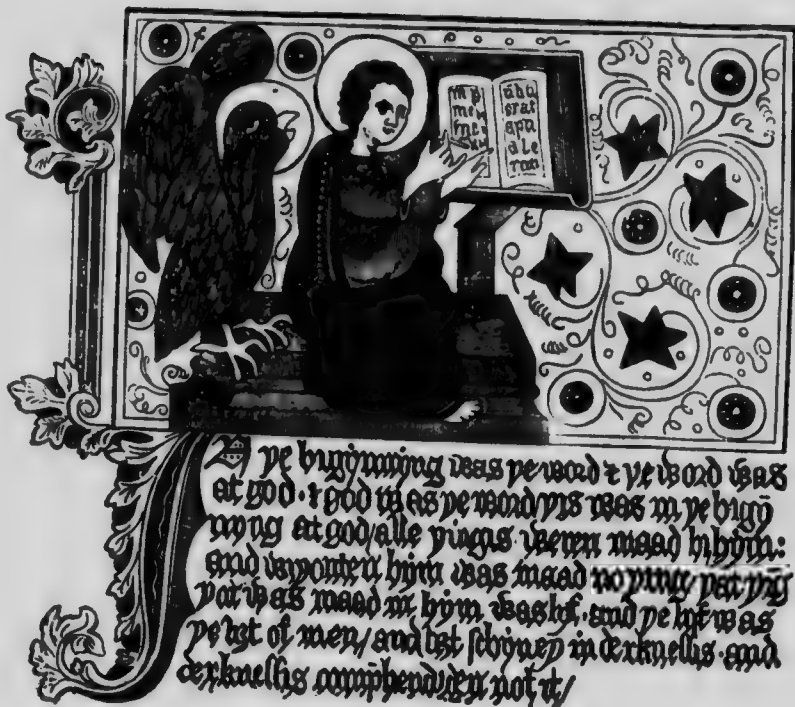 erat
apu
N ye bigynnyng was ye word & ye word was
at god · & god was ye word/ yis was in ye bigȳ
nyng at god/ alle yingis weren maad bi hym:
and wiyouten hym was maad no ying/ yat yīg
yat was maad in hym was lyf · and ye lyf was
ye liȝt of men/ and liȝt schyney in derknessis · and
derknessis comp̄hendiden not it/